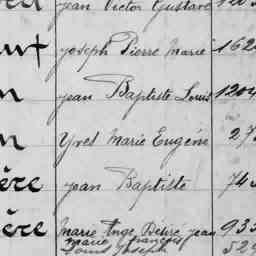 jean Victor Gustave
joseph Pierre Marie 162
jean Baptiste Louis 1204
n Yves Marie Eugène 27
ère jean Baptiste 74
ère Marie Ange Désiré jean 933
Marie François
Louis Joseph 529